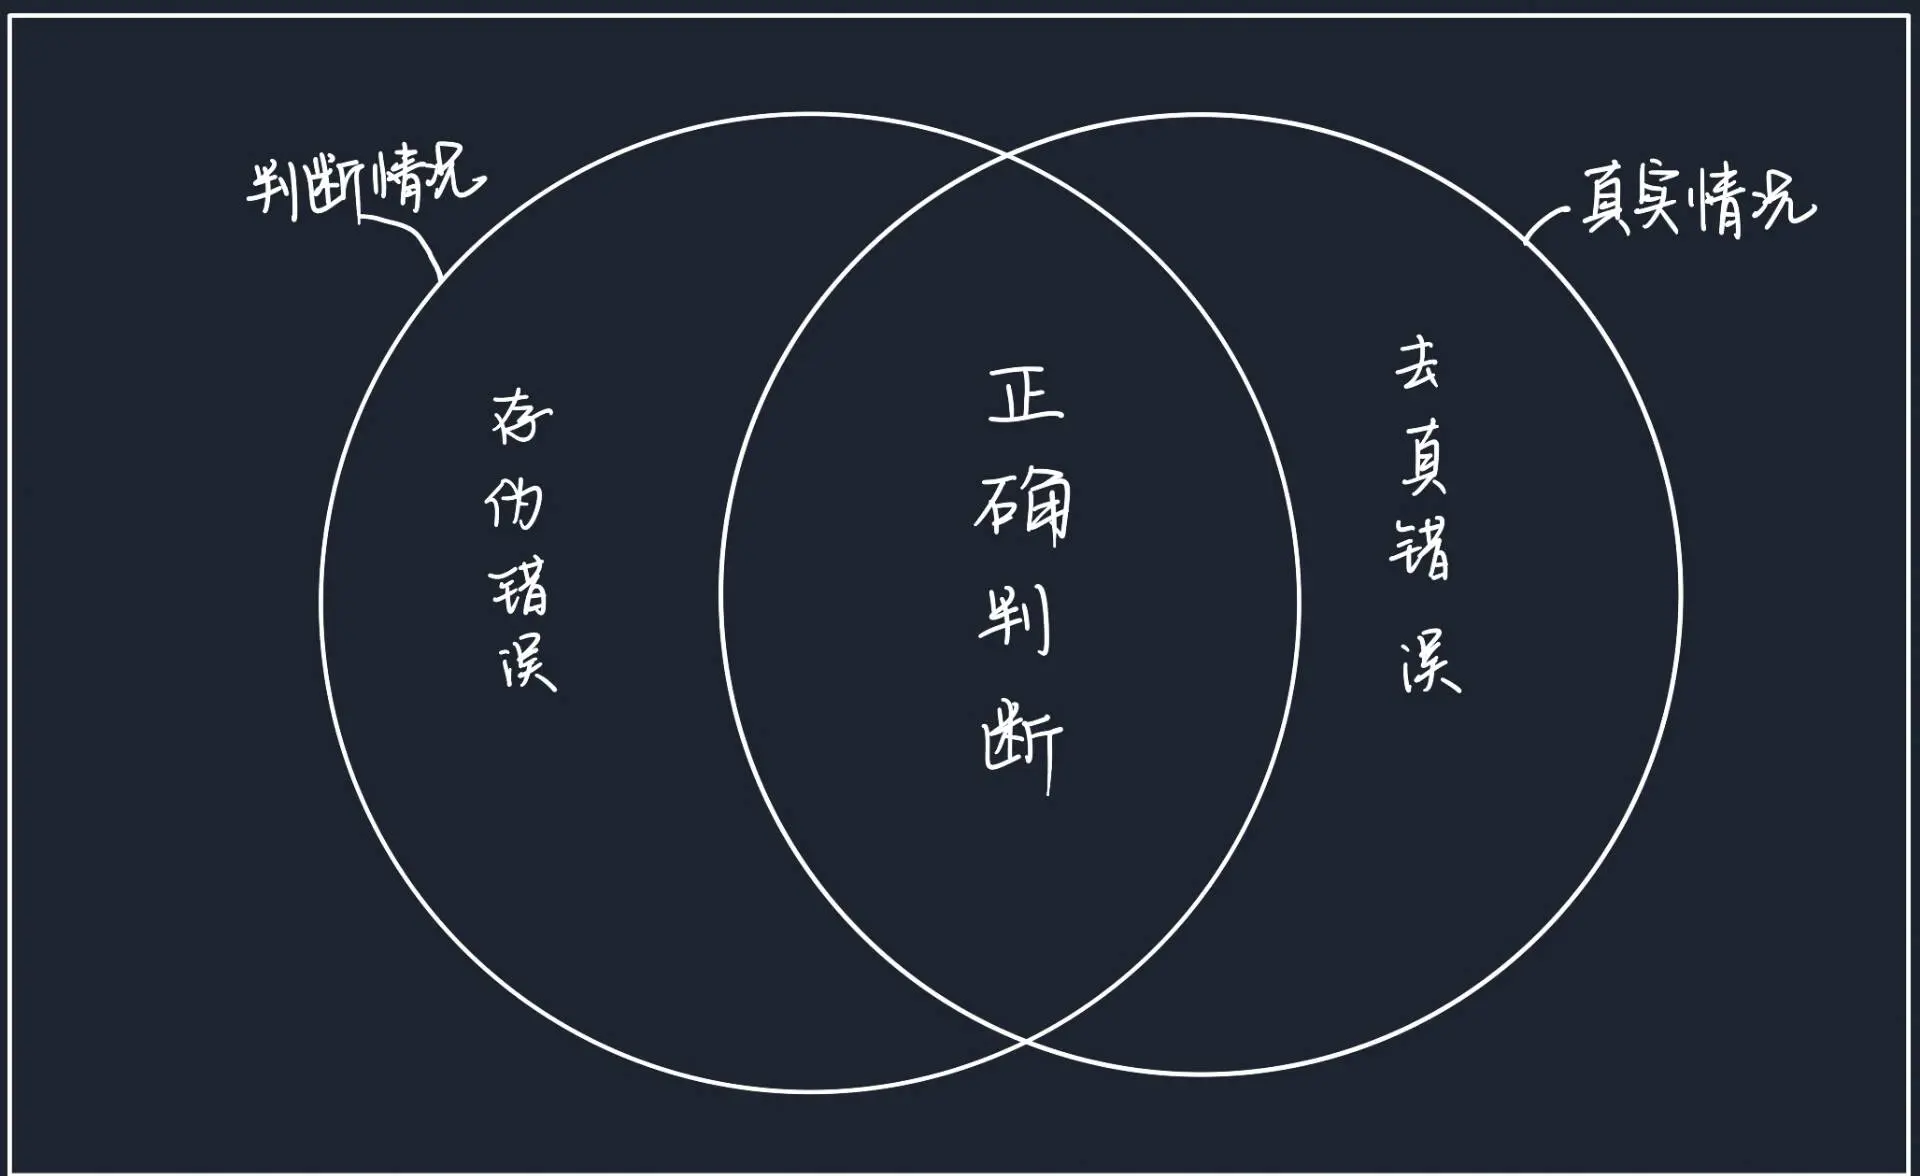 判断情况
真实情况
存伪错误
正确判断
去真错误